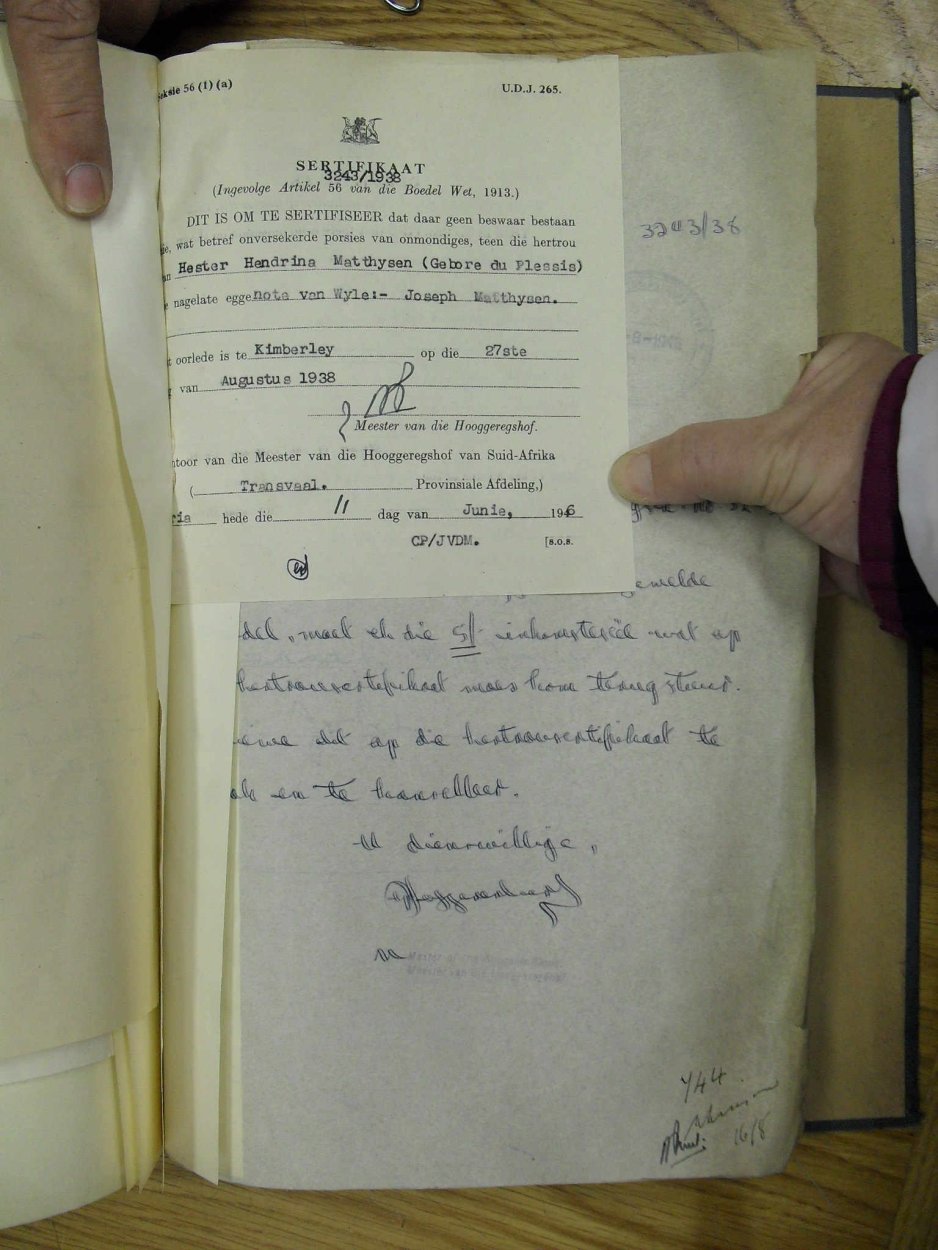 eksie 56 (1) (a)
U.D.J. 265.
SERTIFIKAAT
3243/1938
(Ingevolge Artikel 56 van die Boedel Wet, 1913.)
DIT IS OM TE SERTIFISEER dat daar geen beswaar bestaan
ie, wat betref onversekerde porsies van onmondiges, teen die hertrou
an Hester Hendrina Matthysen (Gebore du Plessis)
e nagelate eggenote van Wyle:- Joseph Matthysen.
t oorlede is te Kimberley op die 27ste
g van Augustus 1938
Meester van die Hooggeregshof.
ntoor van die Meester van die Hooggeregshof van Suid-Afrika
(Transvaal. Provinsiale Afdeling,)
ria hede die 11 dag van Junie, 1946
CP/JVDM. [S.O.S.
3243/38
gemelde
del, moet ek die 5/- wat op
hertrousertifikaat moes kom terugstuur.
dit op die hertrousertifikaat te
en te kanselleer.
U dienswillige,
Master of the Supreme Court
Meester van die Hooggeregshof
744
16/8